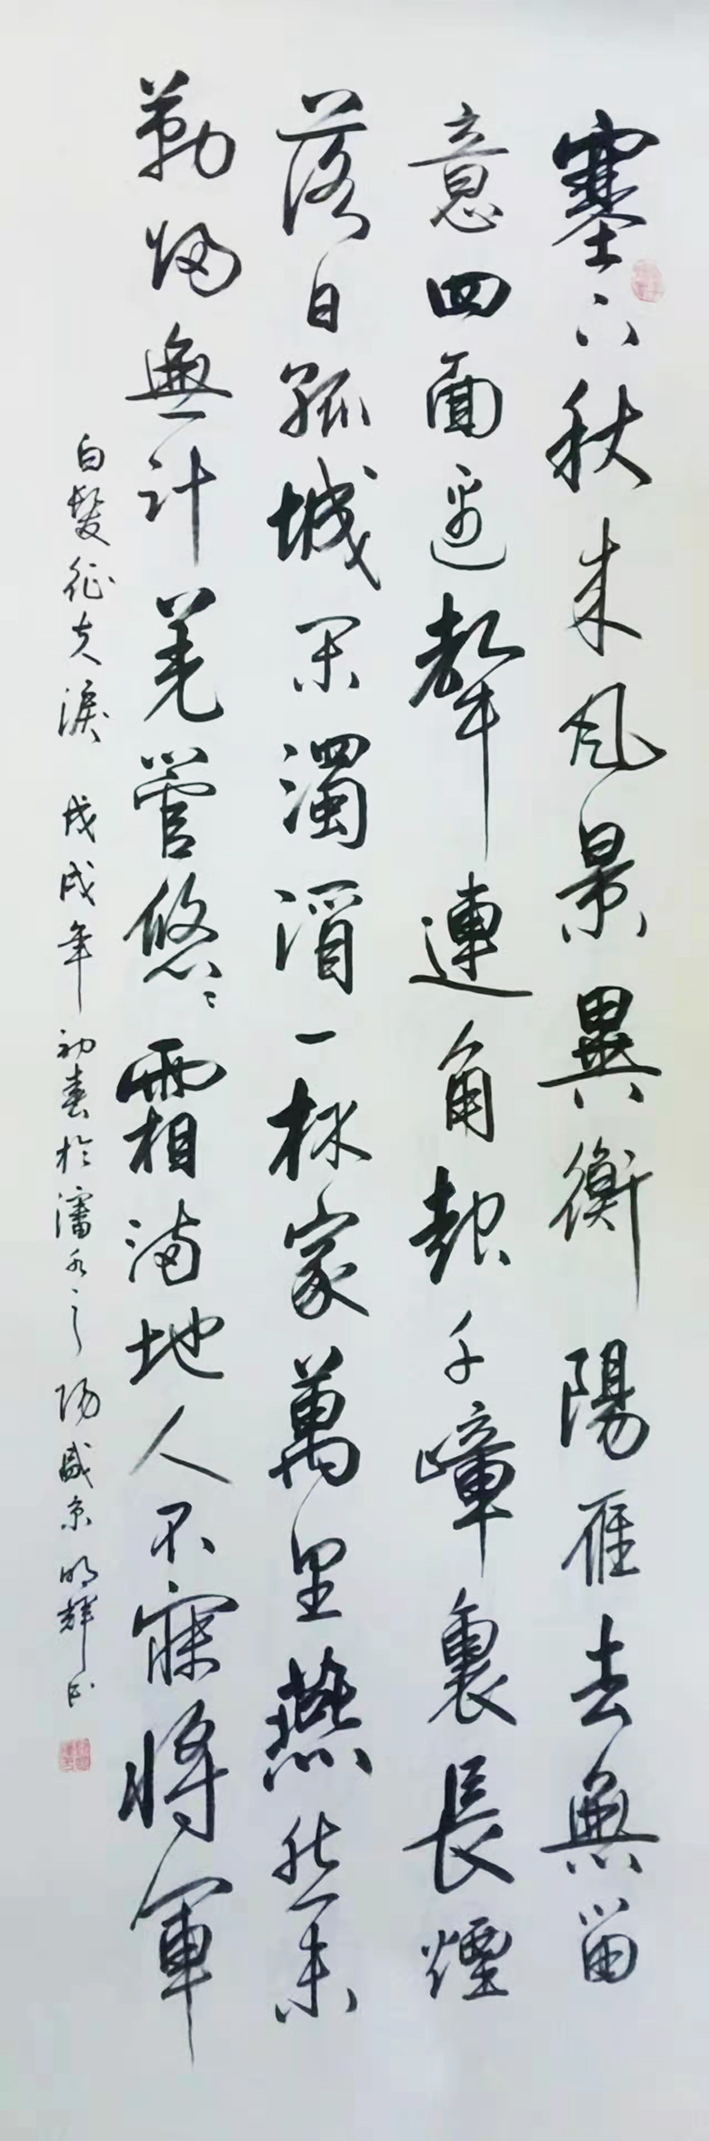 塞下秋来风景異衡陽雁去無留
意四面邊聲連角起千嶂裏長煙
落日孤城闭濁酒一杯家萬里燕然未
勒歸無計羌管悠悠霜满地人不寐將軍
白髮征夫淚 戊戌年初春於瀋水之陽盛京明輝书